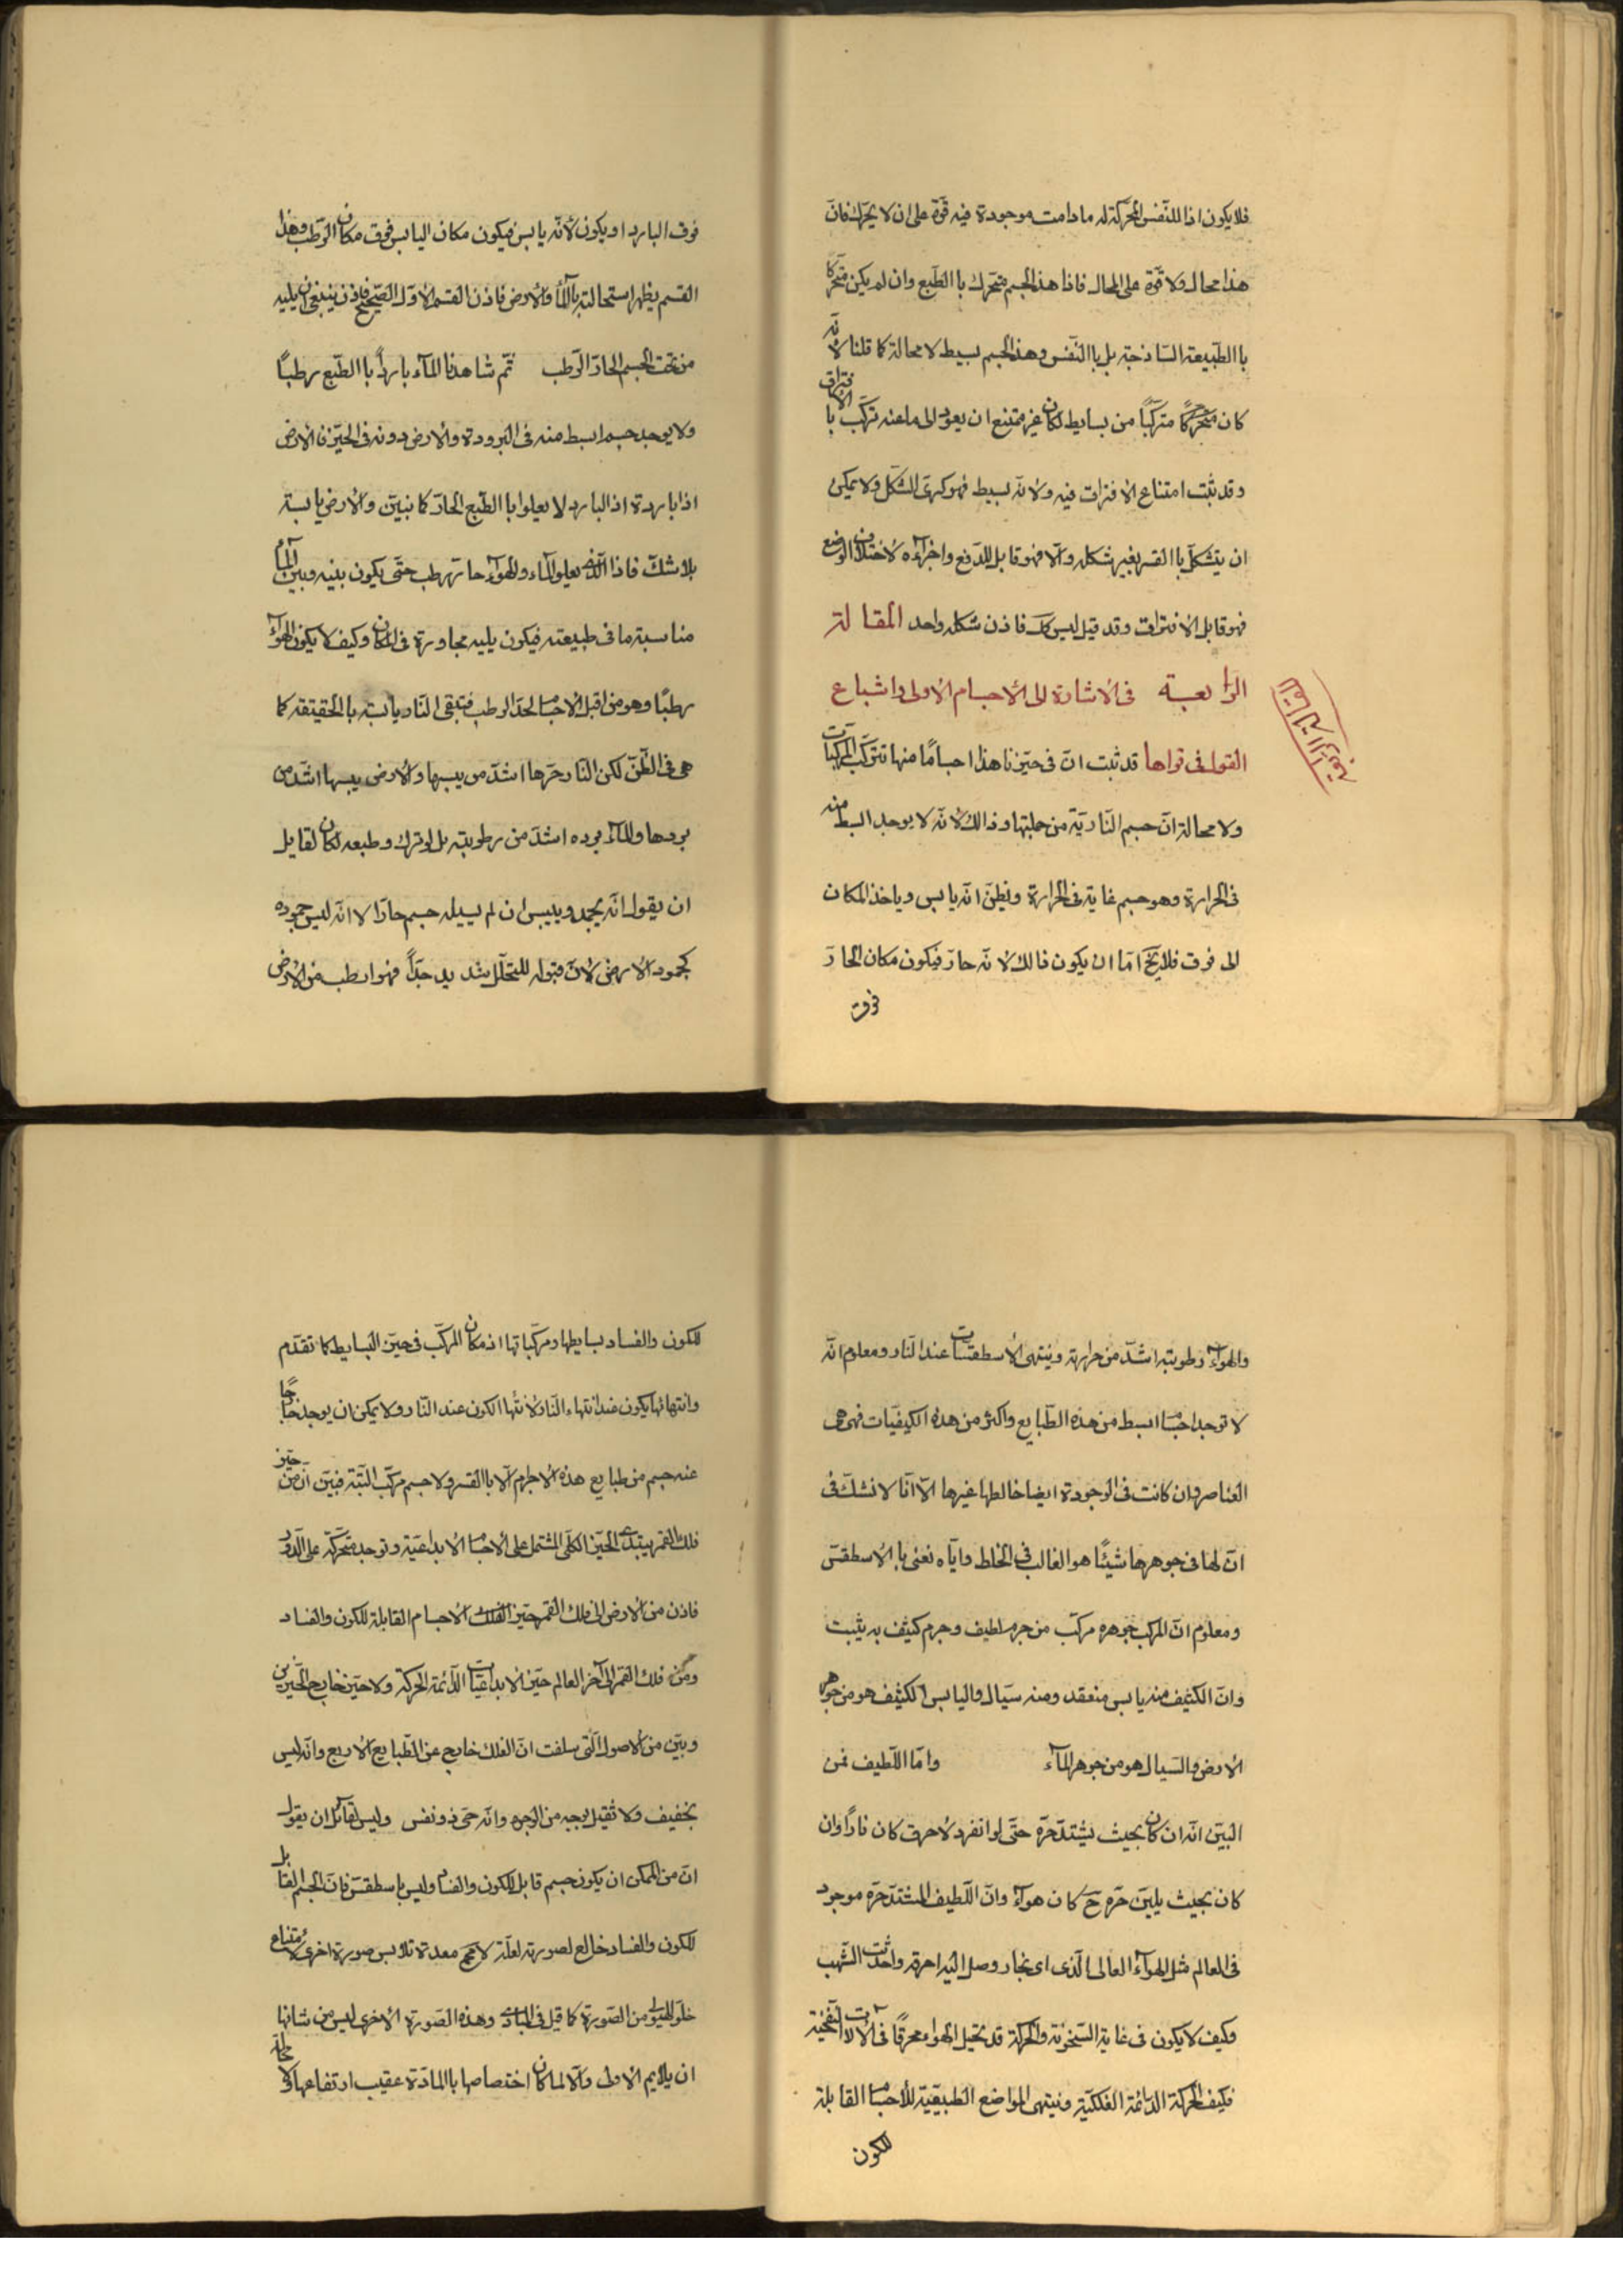 فلا يكون اذا للنّفس المحرّكة له مادامت موجودة فيه قوّة على ان لا يحرّك فانّ
هذا محال ولا قوّة على المحال فاذا هذا الجسم متحرّك باالطّبع وان لم يكن متحرّكا
باالطّبيعة السّاذجة بل باالنّفس وهذا الجسم بسيط لا محالة كما قلنا لأنّه
كان متحرّكًا متركّبًا من بسايط لكان غير ممتنع ان يعود الى ما عنه تركّب باالافتراق
وقد ثبت امتناع الافتراق فيه ولانّه بسيط فهو كرىّ الشّكل ولا يمكن
ان يتشكّل باالقسر بغير شكله والّا فهو قابل للدّفع واجزآءه لاختلاف الوضع
فهو قابل الافتراق وقد قيل ليس كك فاذن شكله واحد المقالة
الرابعة فى الاشارة الى الأجسام الاولى واشباع
القول فى قواها قد ثبت انّ فى حيّزنا هذا اجسامًا منها تتركّب المركّبات
ولا محالة انّ جسم النّاريّة من جملتها وذالك لأنّه لا يوجد ابسط منه
فى الحرارة وهو جسم غاية فى الحرارة ونظنّ انّه يابس وياخذ المكان
الى فوق فلا يخ امّا ان يكون ذالك لانّه حارّ فيكون مكان الحارّ
فوق
فوق البارد او يكون لأنّه يابس فيكون مكان اليابس فوق مكان الرّطب وهذا
القسم يظهر استحالته بالمآء والأرض فاذن القسم الاوّل الصّحيح فاذن ينبغى ان يليه
من تحت الجسم الحارّ الرّطب ثمّ شاهدنا المآء بارداً باالطّبع رطبًا
ولا يوجد جسم ابسط منه فى البرودة والأرض دونه فى الحيّز فالارض
اذا باردة اذ البارد لا يعلوا باالطّبع الحارّ كما نبيّن والأرض يابسة
بلا شكّ فاذا الّذى يعلوا المآء والهوآء حارّ رطب حتّى يكون بينه وبين المآء
مناسبة ما فى طبيعته فيكون يليه مجاورة فى المكان وكيف لا يكون الهوآء
رطبًا وهو من اقبل الاجسام لحدّ الرطب فتبقى النّار يابسة باالحقيقة كما
هى فى الظّنّ لكن النّار حرّها اشدّ من يبسها والأرض يبسها اشدّ من
بردها والمآء برده اشدّ من رطوبته بل لو ترك وطبعه لكان لقايل
ان يقول انّه يجمد وييبس ان لم يسيله جسم حارّ الا انّه ليس جموده
كجمود الأرض لأنّ قبوله للتحلّل شديد جدّاً فهو ارطب من الأرض
والهوآء رطوبته اشدّ من حرارته وينتهى الأسطقسّات عند النّار ومعلوم انّه
لا توجد اجسام ابسط من هذه الطّبايع واكثر من هذه الكيفيّات فهى هى
العناصر وان كانت فى الوجودة ايضا خالطها غيرها الّا انّا لا نشكّ فى
انّ لها فى جوهرها شيئًا هو الغالب فى الخلط وايّاه نعنى با الاسطقسّ
ومعلوم انّ المركب جوهره مركّب من جرم لطيف وجرم كثيف به يثبت
وانّ الكثيف منه يابس منعقد ومنه سيّال واليابس الكثيف هو من جوهر
الأرض والسّيال هو من جوهر المآء وامّا اللّطيف فمن
البيّن انّه ان كان بحيث يشتدّ حرّه حتّى لو انفرد لأحرق كان نارًا وان
كان بحيث يلين حرّه حَ كان هوآءً وانّ اللّطيف المشتدّ حرّه موجود
فى العالم مثل الهوآء العالى الّذى اى بخار وصل اليه احرقه واحدثت الشّهب
وكيف لا يكون فى غاية السّخونة والحركة قد تحيل الهواء محرقًا فى الآلات النّفخيّة
فكيف الحركة الدّائمة الفلكيّة وينتهى المواضع الطّبيعيّة للأجسام القابلة
للكون
للكون والفساد بسايطها ومركّباتها اذ مكان المركّب فى حيّز البسايط كما تقدّم
وانتهائها يكون عند انتهاء النّار لأنتها الكون عند النّار ولا يمكن ان يوجد خارجًا
عنه جسم من طبايع هذه الأجرام الّا باالقسر ولا جسم مركّب البتّة فبيّن انّ من حيّز
فلك القمر يبتدى الحيّز الكلّى المشتمل على الأجسام الابداعيّة وتوجد متحرّكة على الدّور
فاذن من الأرض الى فلك القمر حيّز الفلك الاجسام القابلة للكون والفساد
ومن فلك القمر الى آخر العالم حيّز الابداعيّات الدّائمة الحركة ولا حيّز خارج الحيّزين
وبيّن من الأصول الّتى سلفت انّ الفلك خارج عن الطّبايع الأربع وانّه ليس
بخفيف ولا ثقيل بوجه من الوجوه وانّه حىّ ذو نفس وليس لقآئل ان يقول
انّ من الممكن ان يكون جسم قابل للكون والفساد وليس باسطقسّ فانّ الجسم القابل
للكون والفساد خالع لصورته لعلّة لا مح معدة تلابس صورة اخرى لامتناع
خلوّ الهيولى من الصّورة كما قيل فى المبادى وهذه الصّورة الأخرى ليس من شانها
ان يلايم الأولى والّا لما كان اختصاصها باالمادّة عقيب ارتفاعها ولا محالة